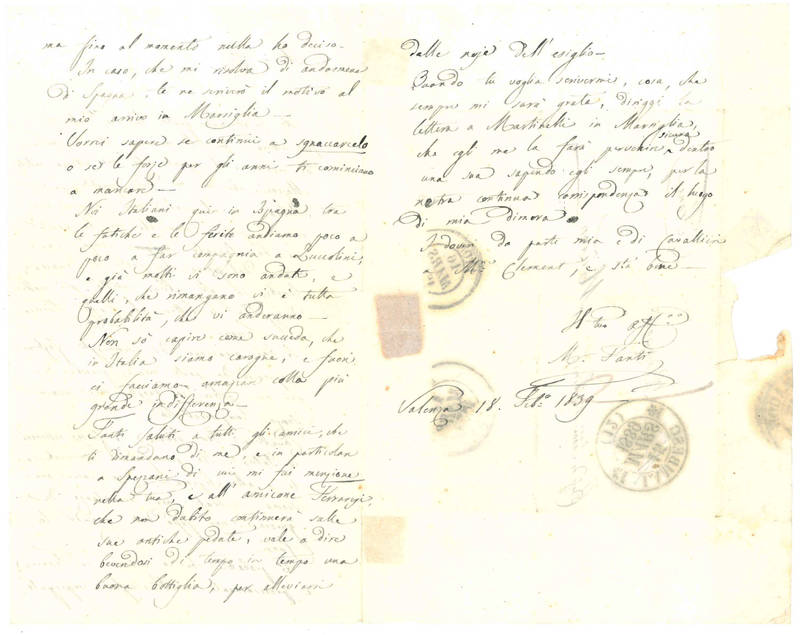 ma fino al momento nulla ho deciso.
In caso, che mi risolva di andarmene
di Spagna, te ne scriverò il motivo al
mio arrivo in Marsiglia —
Vorrei sapere se continui a
o se le forze per gli anni ti cominciano
a mancare —
Noi Italiani qui in Ispagna tra
le fatiche e le ferite andiamo poco a
poco a far compagnia a
e già molti vi sono andati, e
quelli, che rimangano vi è tutta
probabilità, che vi anderanno —
Non sò capire come succeda, che
in Italia siamo carogne, e fuori
ci facciamo amazzar colla più
grande indifferenza —
Tanti saluti a tutti gli amici, che
ti dimandano di me, e in particolar
a di cui mi fai menzione
nella tua, e all' amicone
che non dubito continuerà sulle
sue antiche pedate, vale a dire
bevendosi di tempo in tempo una
buona bottiglia, per alleviarsi
dalle noje dell' esiglio —
Quando tu voglia scrivermi, cosa, che
sempre mi sarà grata, diriggi la
lettera a Martinelli in Marsiglia,
che egli me la farà pervenire sicura dentro
una sua sapendo egli sempre, per la
nostra continua corrispondenza il luogo
di mia dimora.
I doveri da parti mia e di Cavallieri
a Clement, e stà bene —
Il tuo aff.mo
M. Fanti
Valenza 18. Feb.o 1839
1839